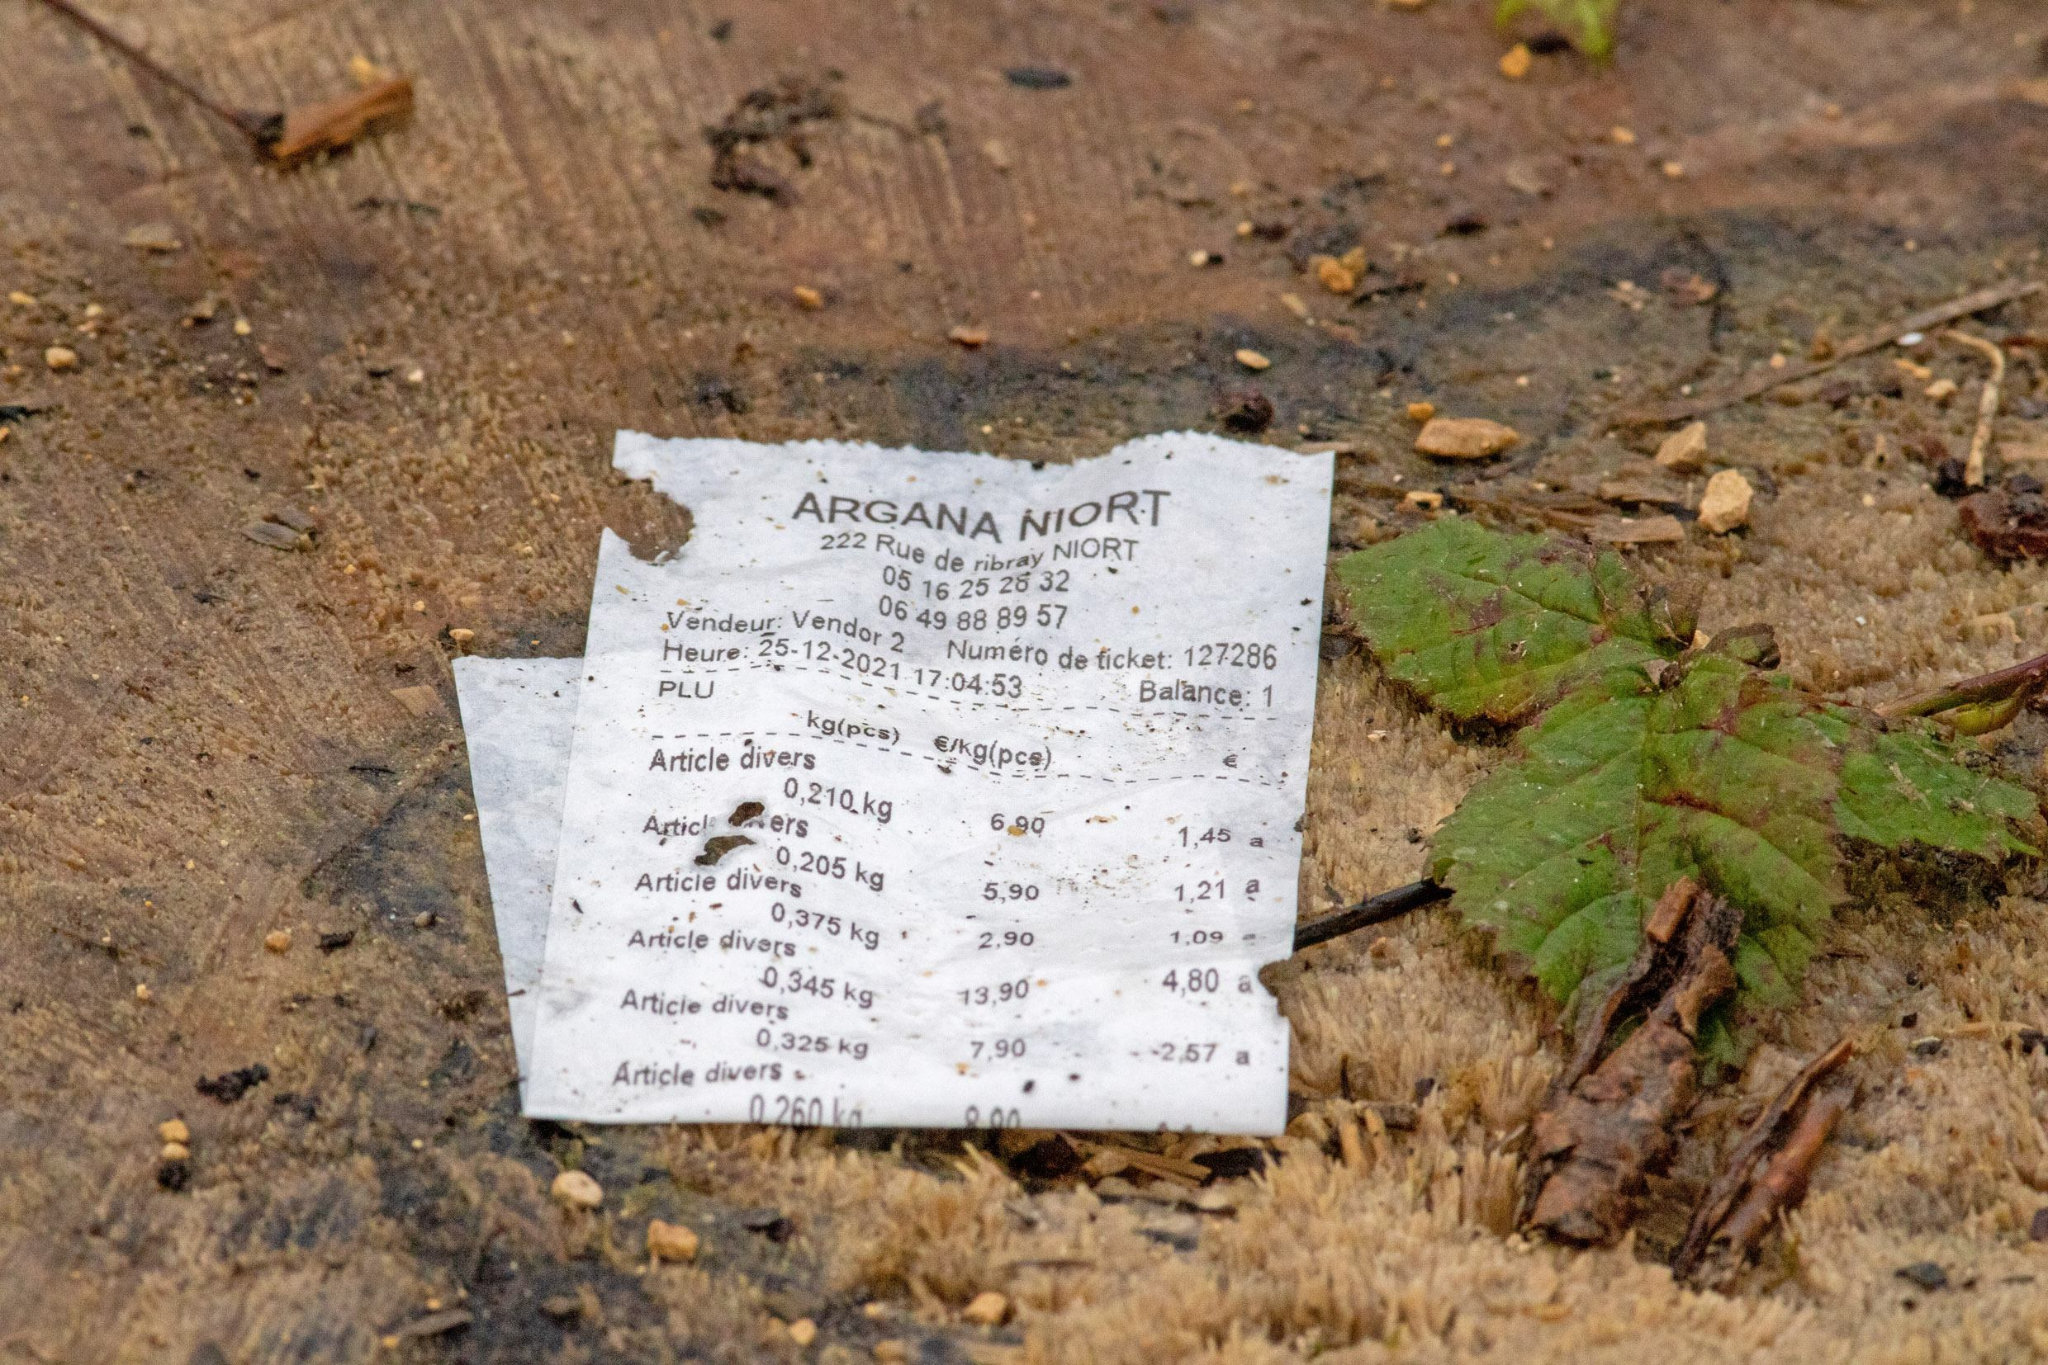 ARGANA NIORT
222 Rue de ribray NIORT
05 16 25 26 32
06 49 88 89 57
Vendeur: Vendor 2 Numéro de ticket: 127286
Heure: 25-12-2021 17:04:53 Balance: 1
PLU
kg(pcs) €/kg(pcs) €
Article divers
0,210 kg 6,90 1,45 a
ers
0,205 kg 5,90 1,21 a
Article divers
0,375 kg 2,90 1,09
Article divers
0,345 kg 13,90 4,80 a
Article divers
0,325 kg 7,90 2,57 a
Article divers
0,260 kg